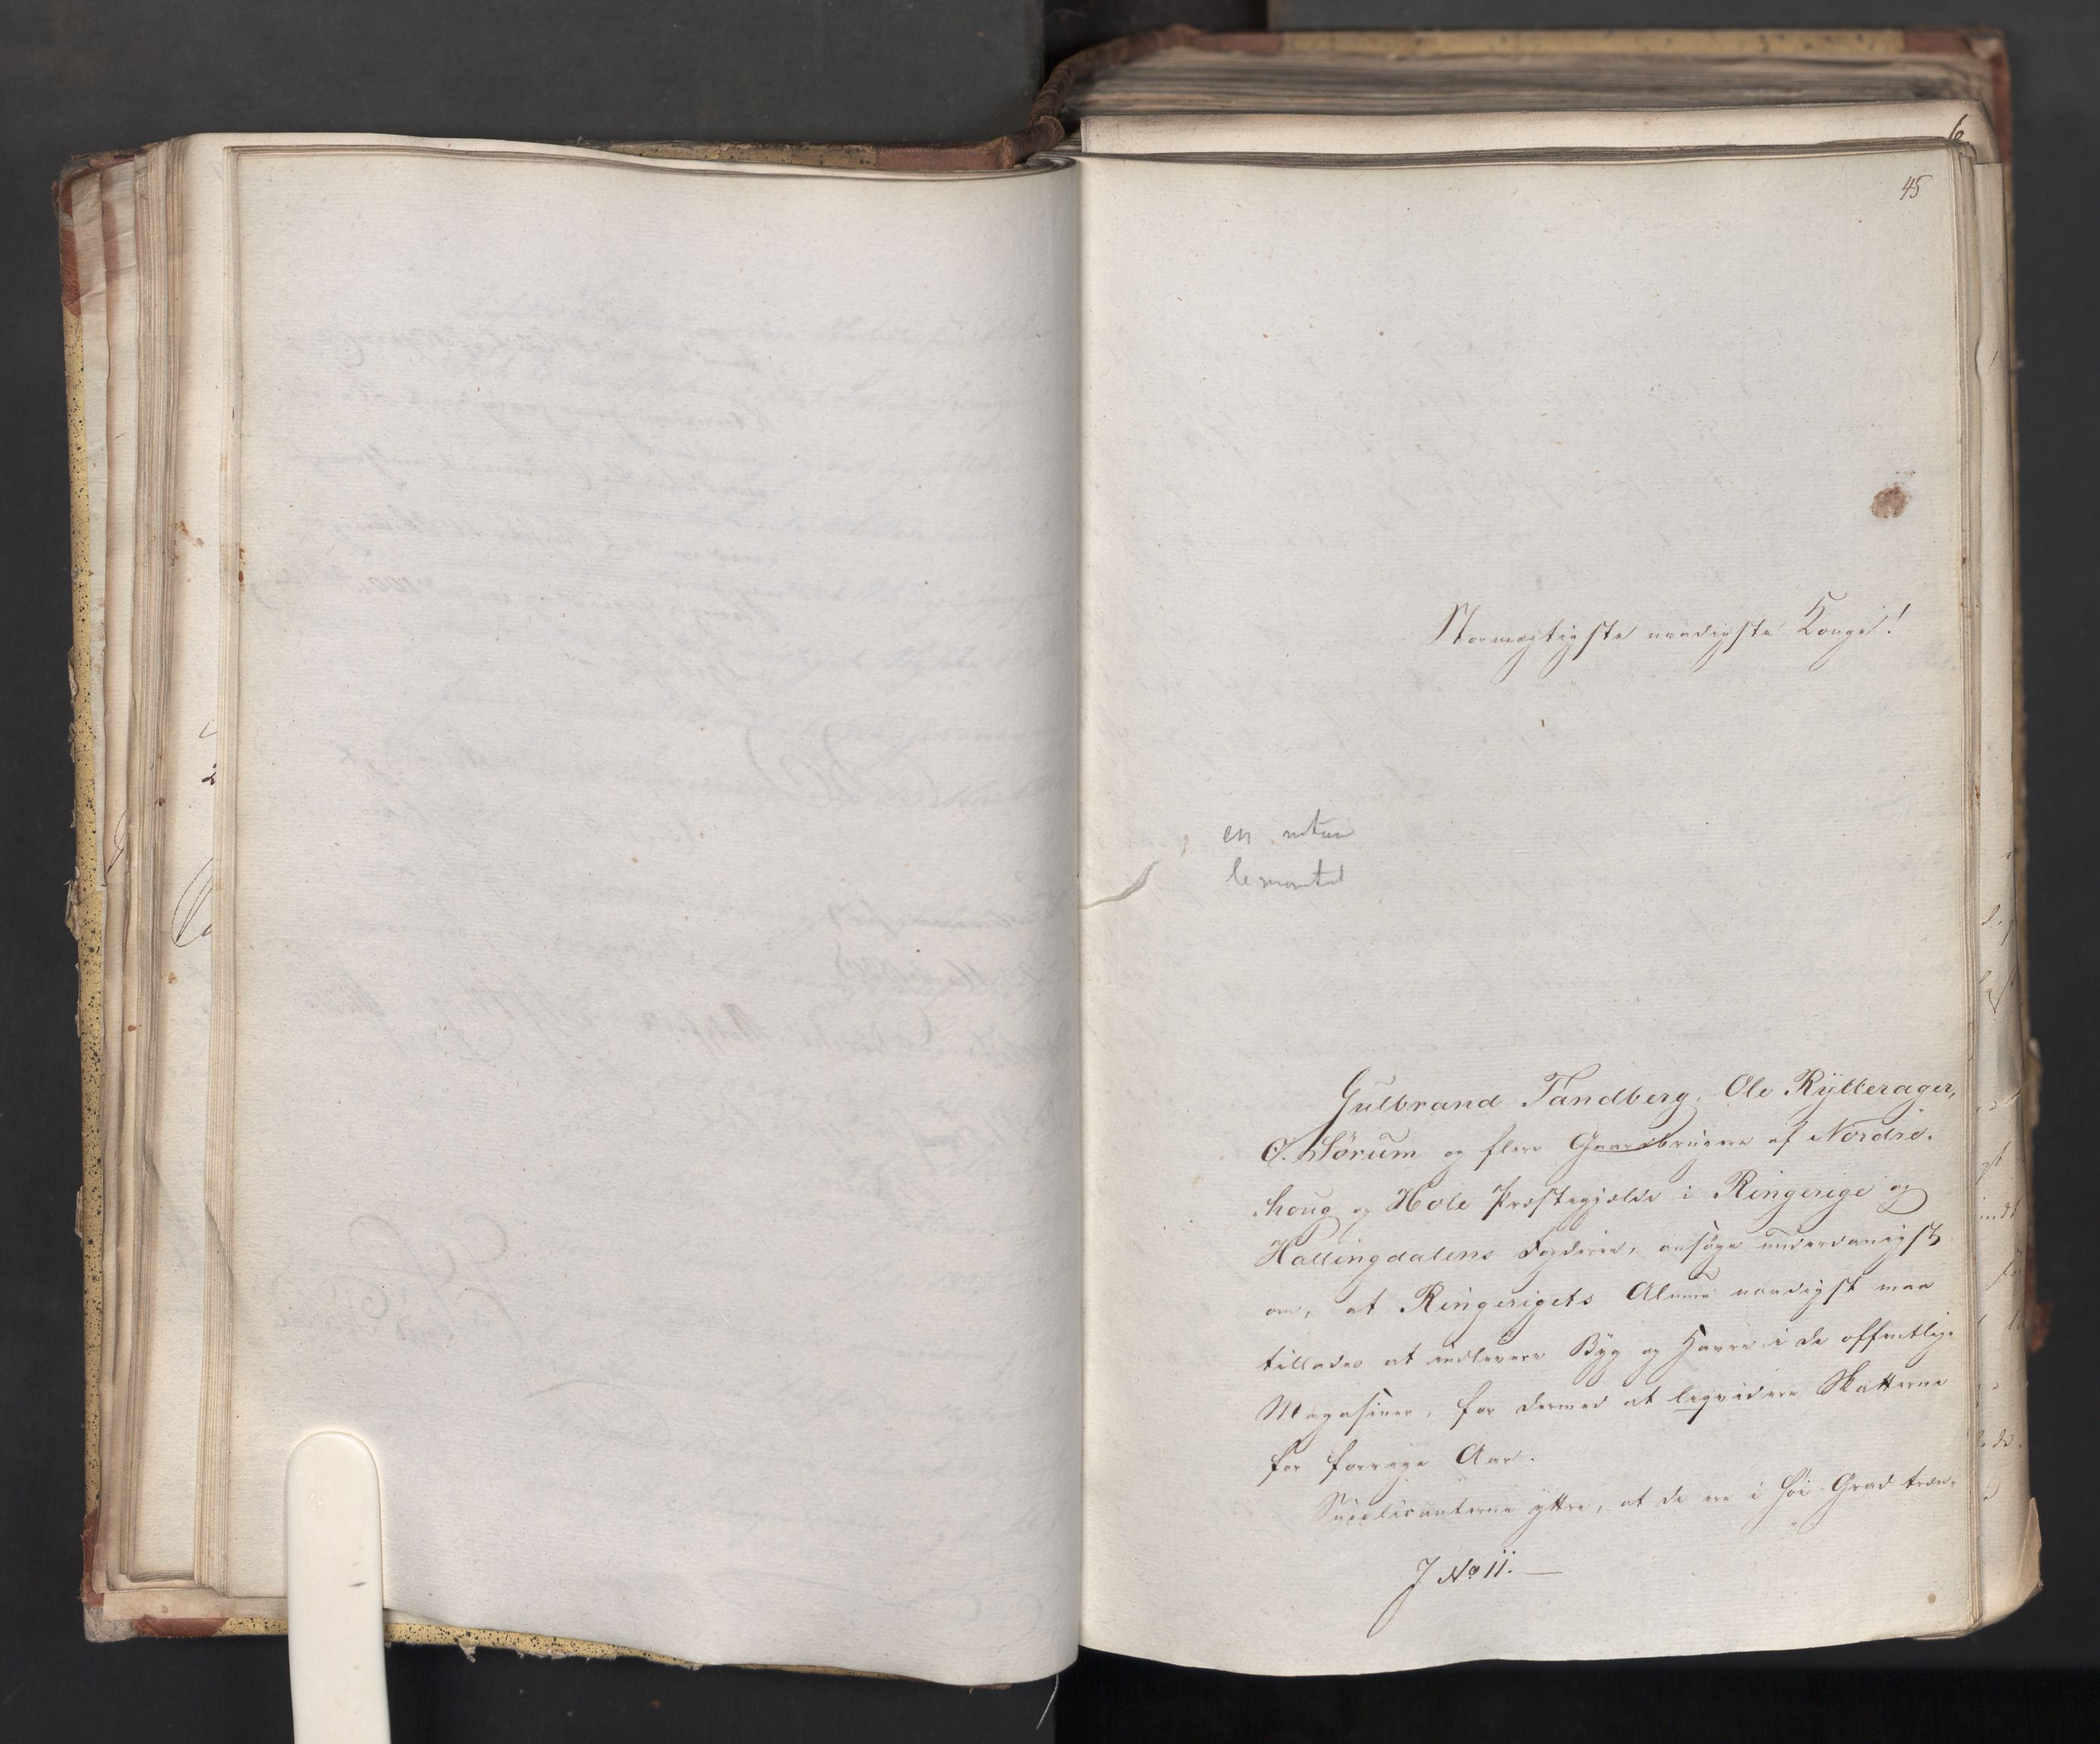 45
Stormægtigste naadigste Konge!
en
Gulbrand Tandberg, Ole Rÿtterager,
O. Sørum og flere Gaardbrugere af Nordre-
houg og Hole Præstegjælde i Ringerige og
Hallingdalens Fogderie, ansøge underdanigst
om, at Ringerigets Almue naadigst maa
tillades at indlevere Byg og Havre i de offentlige
Magasiner, for dermed at liqvidere Skatterne
for forrige Aar.
Supplicanterne ÿttre, at de ere i høi Grad træn-
J No 11.